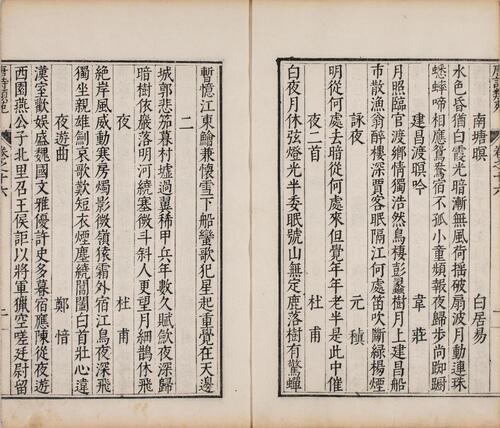 南塘暝 白居易
水色昏猶白霞光暗漸無風荷搖破扇波月動連珠
蟋蟀啼相應鴛鴦宿不孤小童頻報夜歸步尚踟躕
建昌渡暝吟 韋莊
月照臨官渡鄉情獨浩然鳥棲彭蠡樹月上建昌船
市散漁翁醉樓深賈客眠隔江何處笛吹斷綠楊煙
詠夜 元稹
明從何處去暗從何處來但覺年年老半是此中催
夜二首 杜甫
白夜月休弦燈光半委眠號山無定鹿落樹有驚蟬
暫憶江東鱠兼懷雪下船蠻歌犯星起重覺在天邊
二
城郭悲笳暮村墟過翼稀甲兵年數久賦斂夜深歸
暗樹依巖落明河繞塞微斗斜人更望月細鵲休飛
夜 杜甫
絶岸風威動寒房燭影微嶺猿霜外宿江鳥夜深飛
獨坐親雄劍哀歌歎短衣煙塵繞閶闔白首壯心違
夜遊曲 鄭愔
漢室歡娛盛魏國文雅優許史多暮宿應陳從夜遊
西園燕公子北里召王侯詎以將軍獵空嗟廷尉留